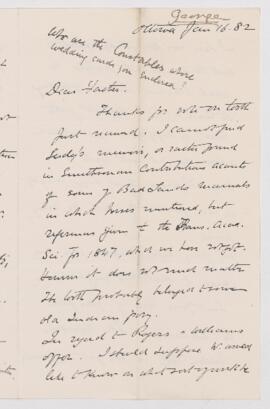 George
Ottawa Jan 16. 82
Who are the Constables whose
wedding cards you enclosed?
Dear Father.
Thanks for note on tooth
just received. I cannot find
Leidy's memoir, or rather find
in Smithsonian Contributions accounts
of some of Bad Lands mammals
in which horses mentioned, but
references given to the Trans. Acad.
Sci. for 1847, which we have not got.
However it does not much matter
The tooth probably belonged to some
old Indian pony.
In regard to Rogers & Williams
offer. I should suppose W. would
like to know on what sort